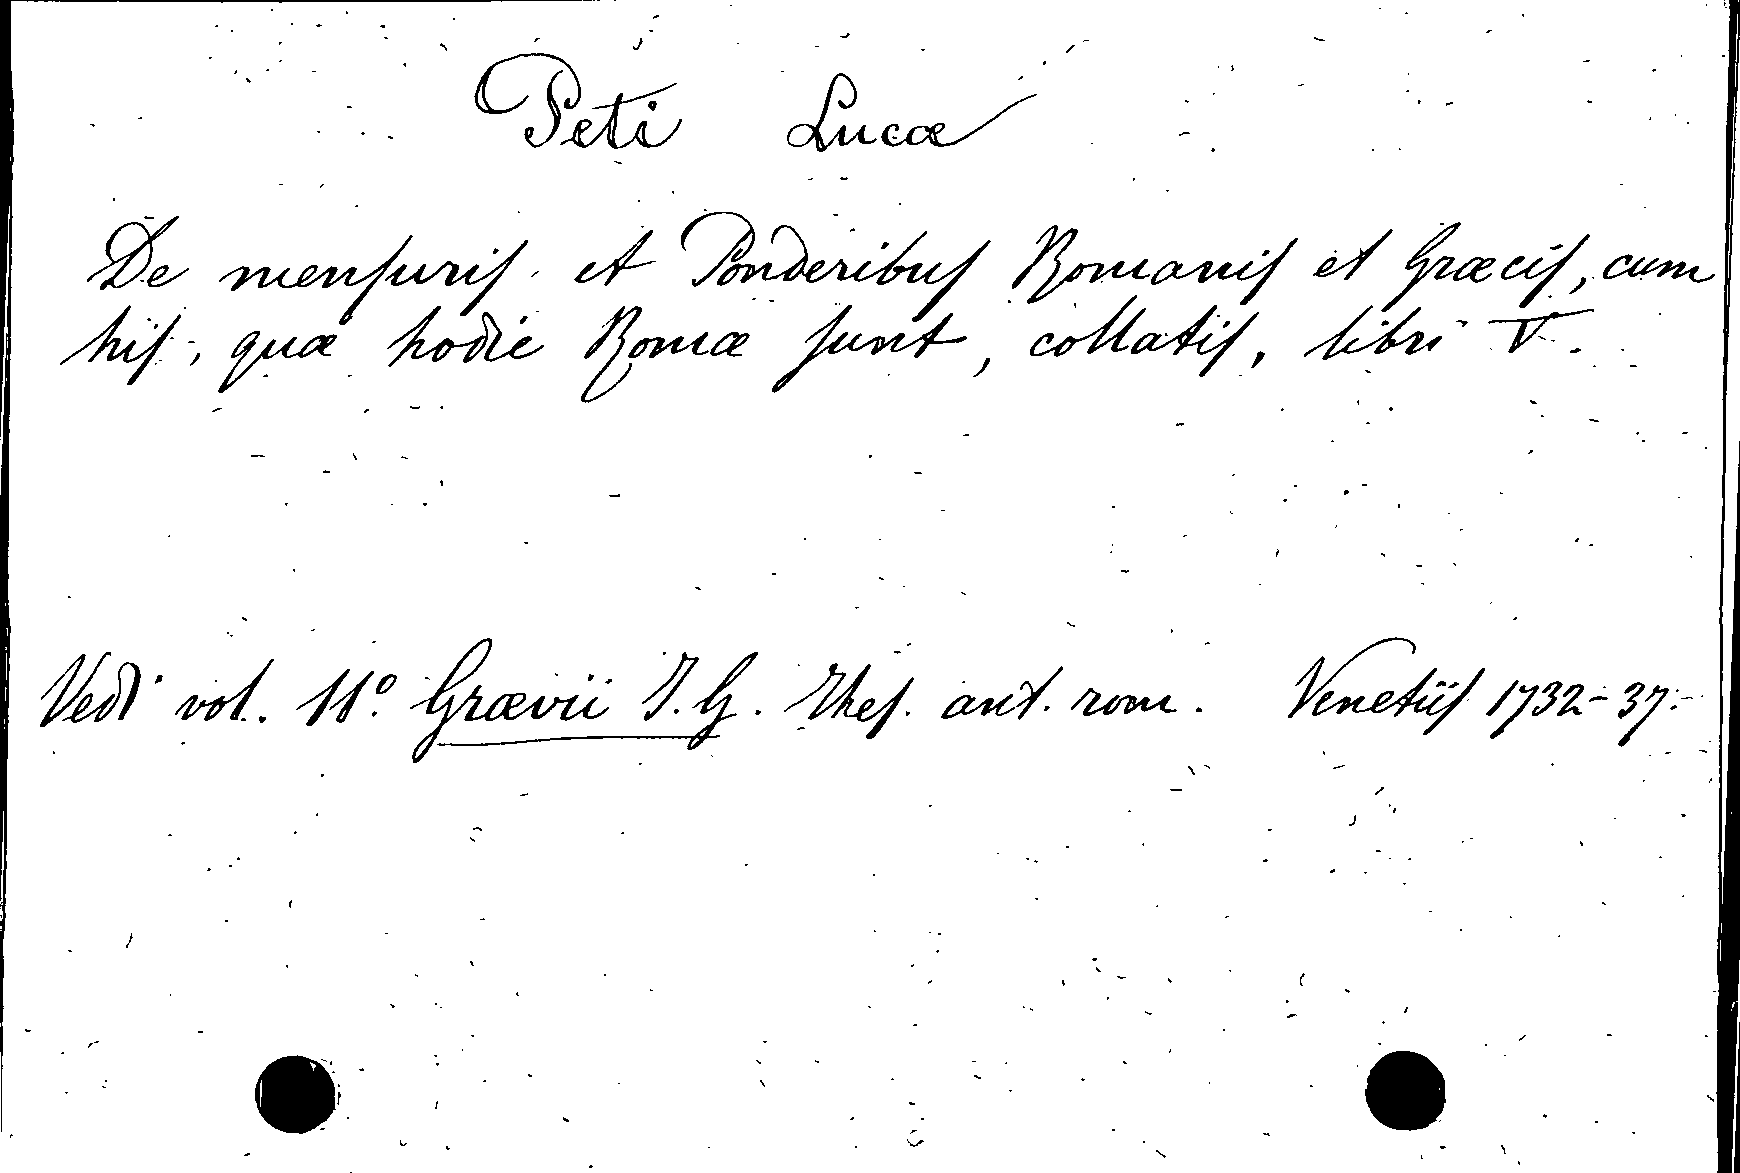 Peti Lucæ
De mensuris et Ponderibus Romanis et Græcis, cum
his, quæ hodie Romæ sunt, collatis, libri V.
Vedi vol. 11º. Grævii J. G. Thes. ant. rom. Venetiis 1732-37.